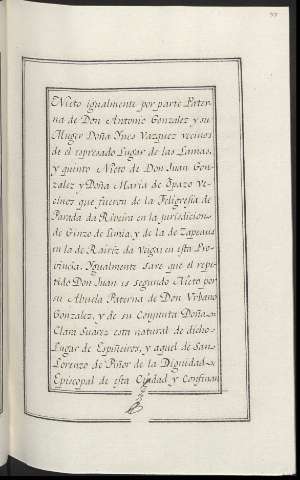 Nieto igualmente por parte Pater-
na de Don Antonio Gonzalez y su
Muger Doña Ynes Vazquez vecinos
de el espresado Lugar de las Lamas,
y quinto Nieto de Don Juan Gon-
zalez y Doña Maria de Opazo Ve-
cinos que fueron de la Feligresia de
Parada da Riveira en la jurisdicion
de Ginzo de Limia, y de la de Zapeaus
en la de Rairiz da Veiga; en esta Pro-
vincia. Ygualmente save que el repe-
tido Don Juan es segundo Nieto por
su Abuela Paterna de Don Vrbano
Gonzalez, y de su Conjunta Doña
Clara Suarez esta natural de dicho
Lugar de Espiñeiros, y aquel de San
Lorenzo de Piñor de la Dignidad
Episcopal de esta Ciudad y Confinan